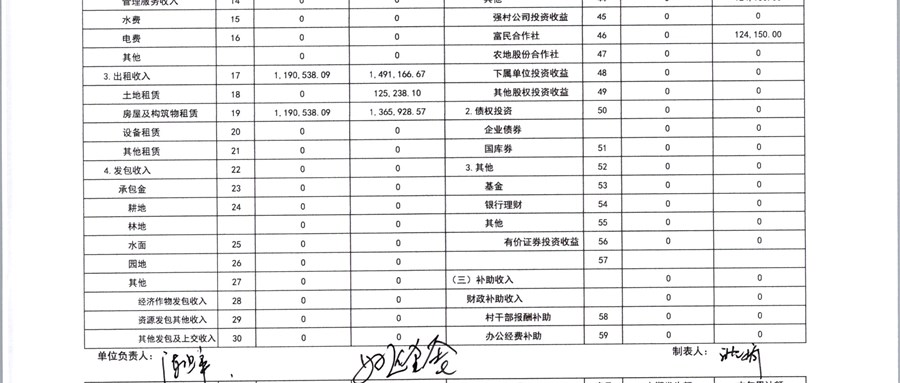 管理服务收入 14 0 0 其他
水费 15 0 0 强村公司投资收益 45 0 0
电费 16 0 0 富民合作社 46 0 124,150.00
其他 0 0 农地股份合作社 47 0 0
3.出租收入 17 1,190,538.09 1,491,166.67 下属单位投资收益 48 0 0
土地租赁 18 0 125,238.10 其他股权投资收益 49 0 0
房屋及构筑物租赁 19 1,190,538.09 1,365,928.57 2.债权投资 50 0 0
设备租赁 20 0 0 企业债券 0 0
其他租赁 21 0 0 国库券 51 0 0
4.发包收入 22 0 0 3.其他 52 0 0
承包金 23 0 0 基金 53 0 0
耕地 24 0 0 银行理财 54 0 0
林地 0 0 其他 55 0 0
水面 25 0 0 有价证券投资收益 56 0 0
园地 26 0 0 57
其他 27 0 0 (三)补助收入 0 0
经济作物发包收入 28 0 0 财政补助收入 0 0
资源发包其他收入 29 0 0 村干部报酬补助 58 0 0
其他发包及上交收入 30 0 0 办公经费补助 59 0 0
单位负责人: 制表人: